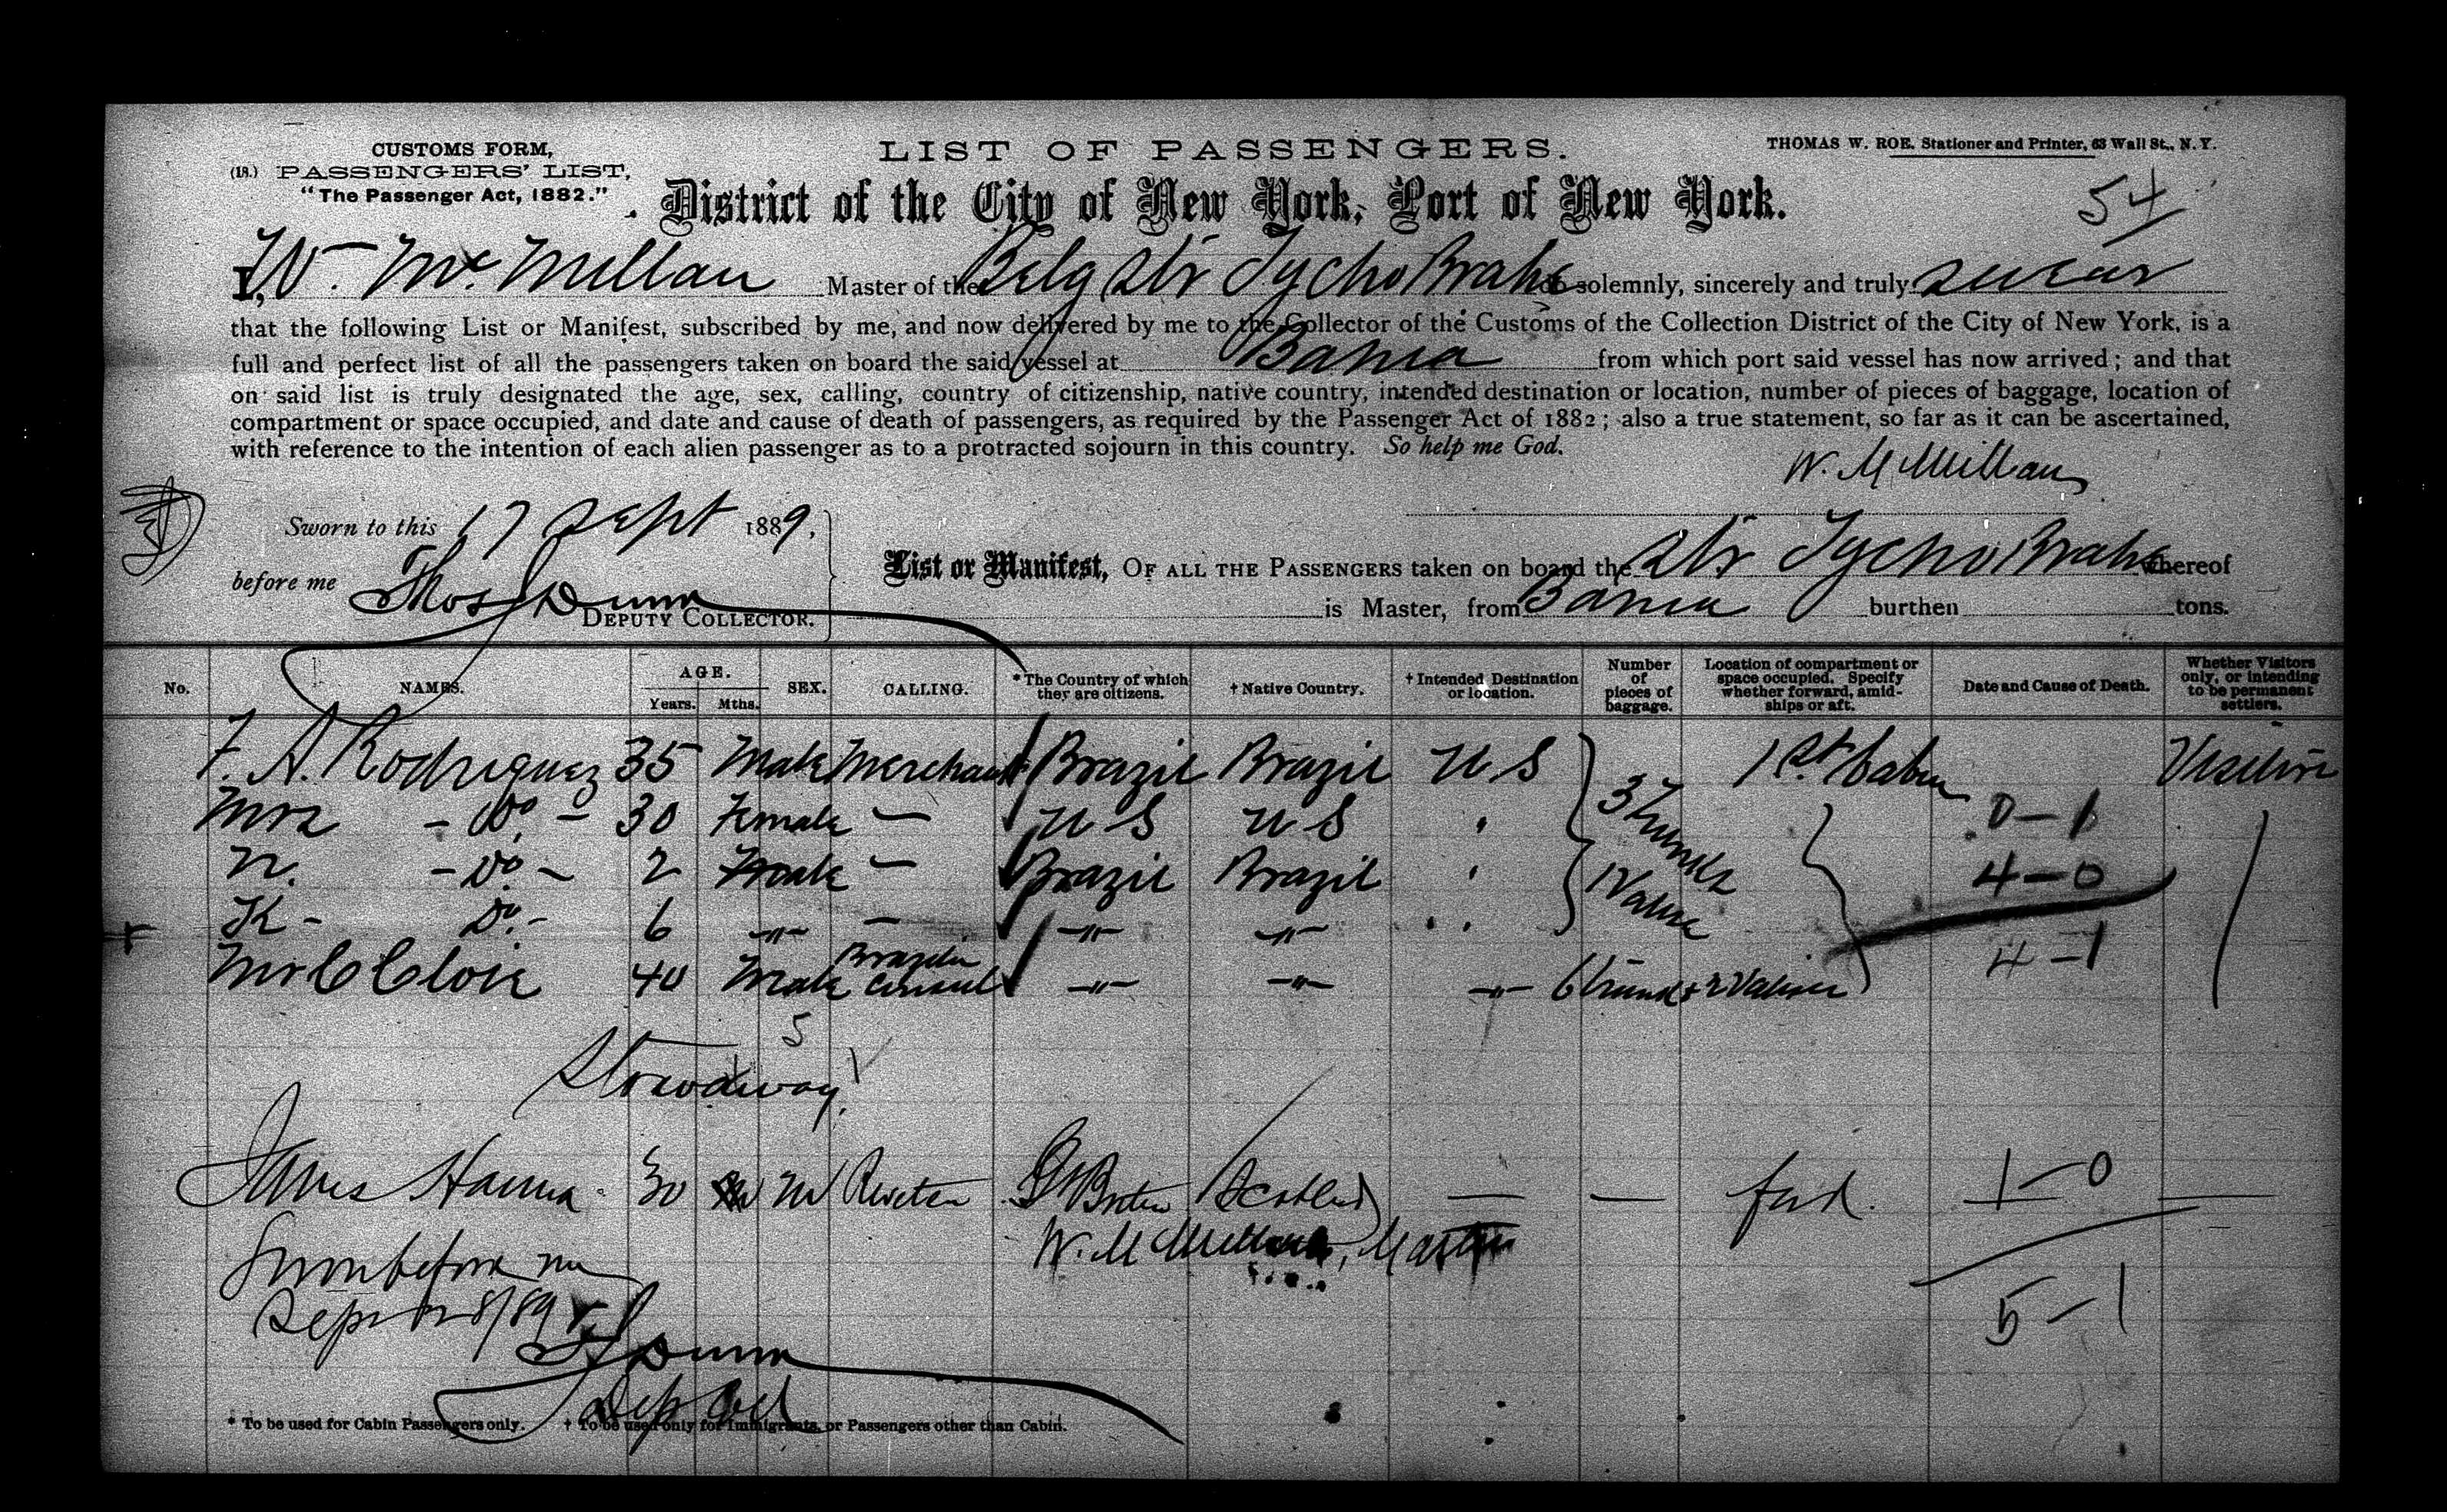 CUSTOMS FORM,
(18.) PASSENGERS' LIST,
"The Passenger Act, 1882."
LIST OF PASSENGERS.
THOMAS W. ROE. Stationer and Printer, 63 Wall St., N. Y.
District of the City of New York, Port of New York.
54
I, W. Mc. Millan Master of the Belg Str Tycho Brahe do solemnly, sincerely and truly swear
that the following List or Manifest, subscribed by me, and now delivered by me to the Collector of the Customs of the Collection District of the City of New York, is a
full and perfect list of all the passengers taken on board the said vessel at Bahia from which port said vessel has now arrived; and that
on said list is truly designated the age, sex, calling, country of citizenship, native country, intended destination or location, number of pieces of baggage, location of
compartment or space occupied, and date and cause of death of passengers, as required by the Passenger Act of 1882; also a true statement, so far as it can be ascertained,
with reference to the intention of each alien passenger as to a protracted sojourn in this country. So help me God.
W. McMillan
Sworn to this 17 Sept 1889,
before me Thos Dunn
DEPUTY COLLECTOR.
List or Manifest, OF ALL THE PASSENGERS taken on board the Str Tycho Brahe whereof
is Master, from Bahia burthen tons.
No. NAMES. AGE. Years. Mths. SEX. CALLING. * The Country of which they are citizens. † Native Country. † Intended Destination or location. Number of pieces of baggage. Location of compartment or space occupied. Specify whether forward, amidships or aft. Date and Cause of Death. Whether Visitors only, or intending to be permanent settlers.
F. A. Rodriguez 35 Male Merchant Brazil Brazil U S 3 Trunks 1 Valise 1st Cabin
Mrs - Do. - 30 Female — U S U S 0-1
N. - Do. - 2 Male — Brazil Brazil 4-0
K - Do. - 6 -"- — -"- -"-
4-1
Mr C Cloie 40 Male Consul -"- -"- -"-
5
Stowaway
James Hanna 30 M G Britn Scotland — — fwd. 1-0 —
W. McMillan, Master
Sworn before me
Sept 18/89
T Dunn
Dep Col
5-1
* To be used for Cabin Passengers only. † To be used only for Immigrants, or Passengers other than Cabin.